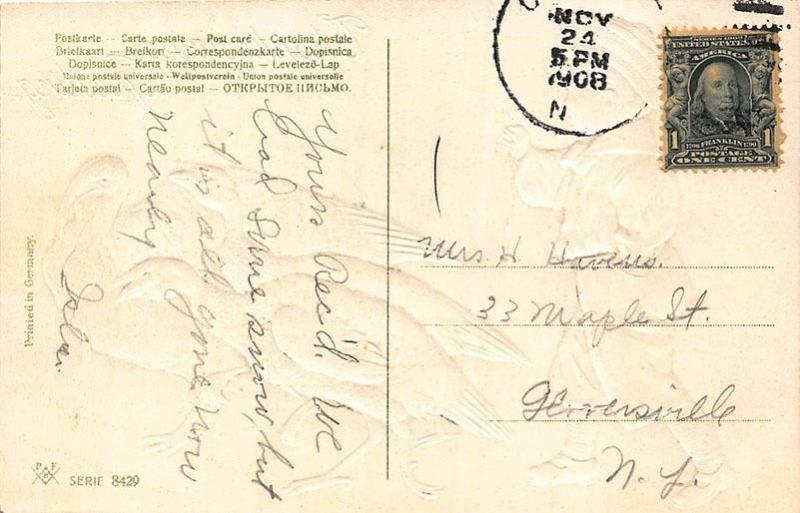 Postkarte – Carte postale – Post card – Cartolina postale
Briefkaart – Brefkort – Correspondenzkarte – Dopisnica
Dopisnice – Karta korespondencyjna – Levelező-Lap
Unione postale universale – Weltpostverein – Union postale universelle
Tarjeta postal – Cartão postal – ОТКРЫТОЕ ПИСЬМО.
NOV
24
5 PM
1908
N
SERIES 1902
UNITED STATES OF
AMERICA
1 1
1706 FRANKLIN 1790
POSTAGE
ONE CENT
Yours Rec'd. We
had some snow, but
it is all gone now
nearly
Mrs. H Havens.
33 Maple St.
Gloversville
N. Y.
Printed in Germany.
P F
SERIE 8429